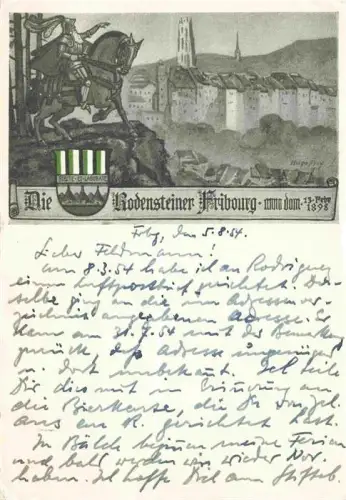 Die Rodensteiner Fribourg · anno dom · 13. Febr. 1898
Fbg, den 5.8.54.
Lieber Feldmann!
am 8.3.54 habe ich an Rodriguez
einen Luftpostbrief gerichtet. Der-
selbe ging an die im Adressenver-
zeichnis angegebene Adresse. Er
kam am 31.7.54 mit der Bemerkung
zurück, dass Adresse ungenügend
u. dort unbekannt. Ich teile
Dir dies mit in Erinnerung an
die Bierkarte, die Du
aus an R. gerichtet hast.
In Bälde beginnen meine Ferien
und bald werden wir wieder
haben. Ich hoffe Dich am Stiftsb.